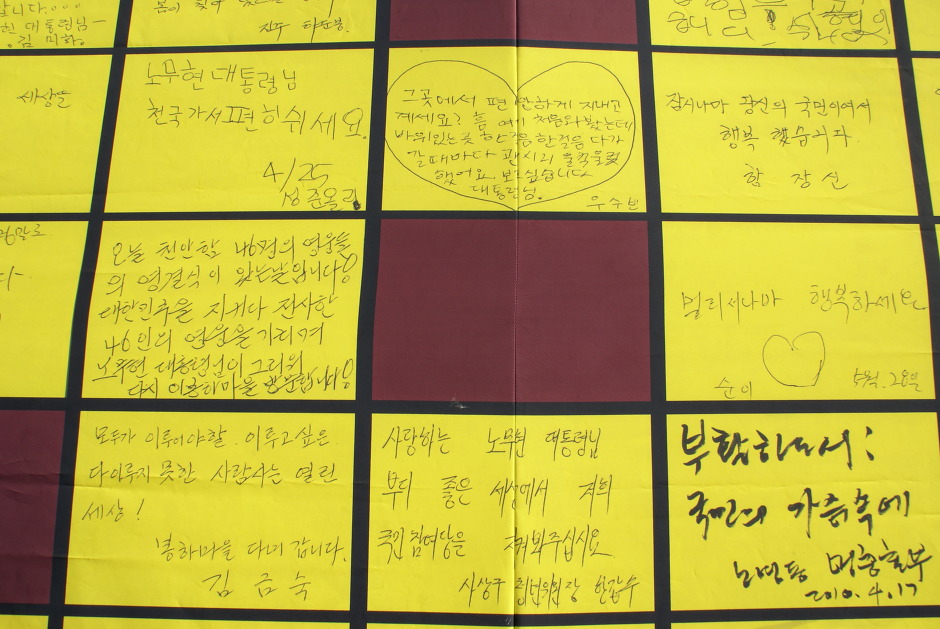 대통령님
김미화
세상들
노무현 대통령님
천국가서 편히 쉬세요
4/25
성준올림
그곳에서 편안하게 지내고
계세요? 흠 여기 처음와봤는데
바위있는곳 한걸음한걸음 다가
갈때마다 괜시리 울컥울컥
했어요. 보고싶습니다
대통령님.
우수빈
잠시나마 당신의 국민이여서
행복 했습니다
함 장 신
오늘 천안함 46명의 영웅들
의 영결식이 있는날입니다
대한민국을 지키다 전사한
46인의 영웅을 기리며
노무현 대통령님이 그리워
다시 이봉하마을 방문합니다
멀리서나마 행복하세요
순이
5월. 28일
모두가 이루어야할. 이루고싶은.
다이루지 못한 사람사는 열린
세상!
봉하마을 다녀 갑니다.
김 금 숙
사랑하는 노무현 대통령님
부디 좋은 세상에서 저희
국민참여당을 지켜봐주십시요
사상구
부활하소서;
국민의 가슴속에
2010. 4. 17